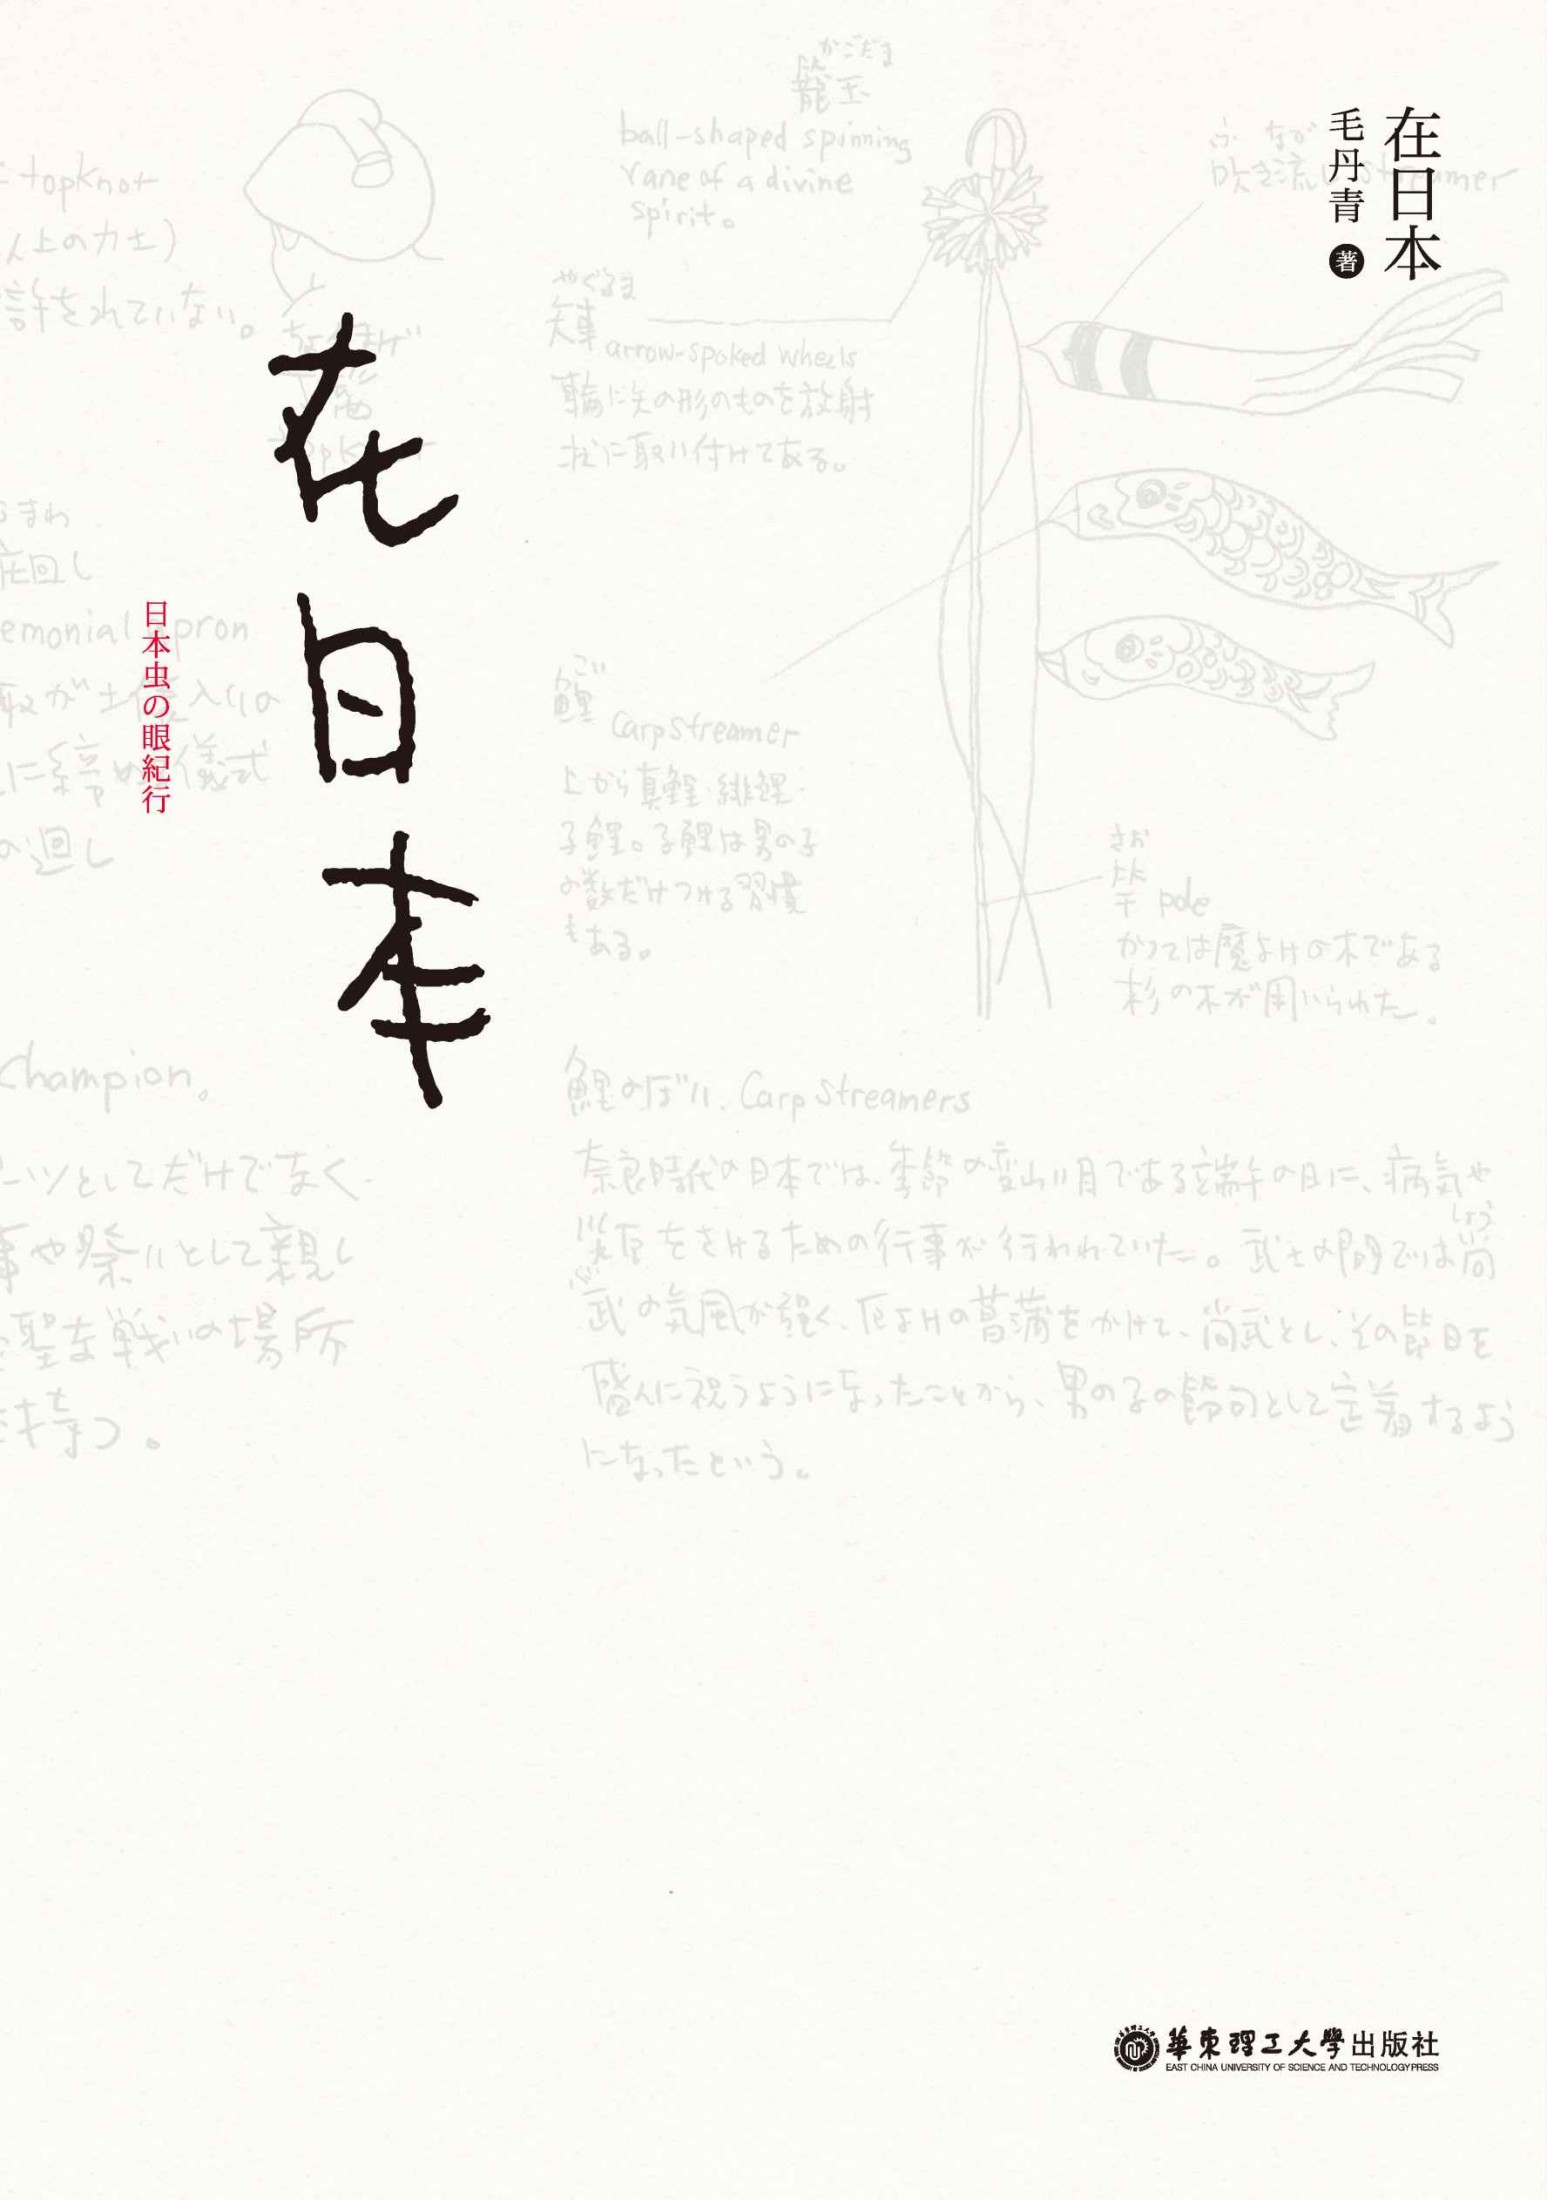 在日本
毛丹青 著
在日本
日本虫の眼紀行
かごだま
籠玉
ball-shaped spinning
vane of a divine
spirit。
ふ なが
吹き流し streamer
topknot
人上の力士)
許されていない。
やぐるま
矢車
arrow-spoked wheels
輪に矢の形のものを放射
状に取り付けてある。
ちょんまげ
まわ
回し
emonial apron
取が土俵入りの
に締める儀式
の廻し
ごい
鯉
Carp streamer
上から真鯉・緋鯉・
子鯉。子鯉は男の子
の数だけつける習慣
もある。
さお
竿 pole
かつては魔よけの木である
杉の木が用いられた。
Champion。
ーツとしてだけでなく
事や祭りとして親し
聖な戦いの場所
持つ。
鯉のぼり、Carp Streamers
奈良時代の日本では、季節の変わり月である端午の日に、病気や
災厄をさけるための行事が行われていた。武士の間では尚
しょう
武の気風が強く、厄よけの菖蒲をかけて、尚武とし、その節日を
盛んに祝うようになったことから、男の子の節句として定着するよう
になったという。
華東理工大學出版社
EAST CHINA UNIVERSITY OF SCIENCE AND TECHNOLOGY PRESS